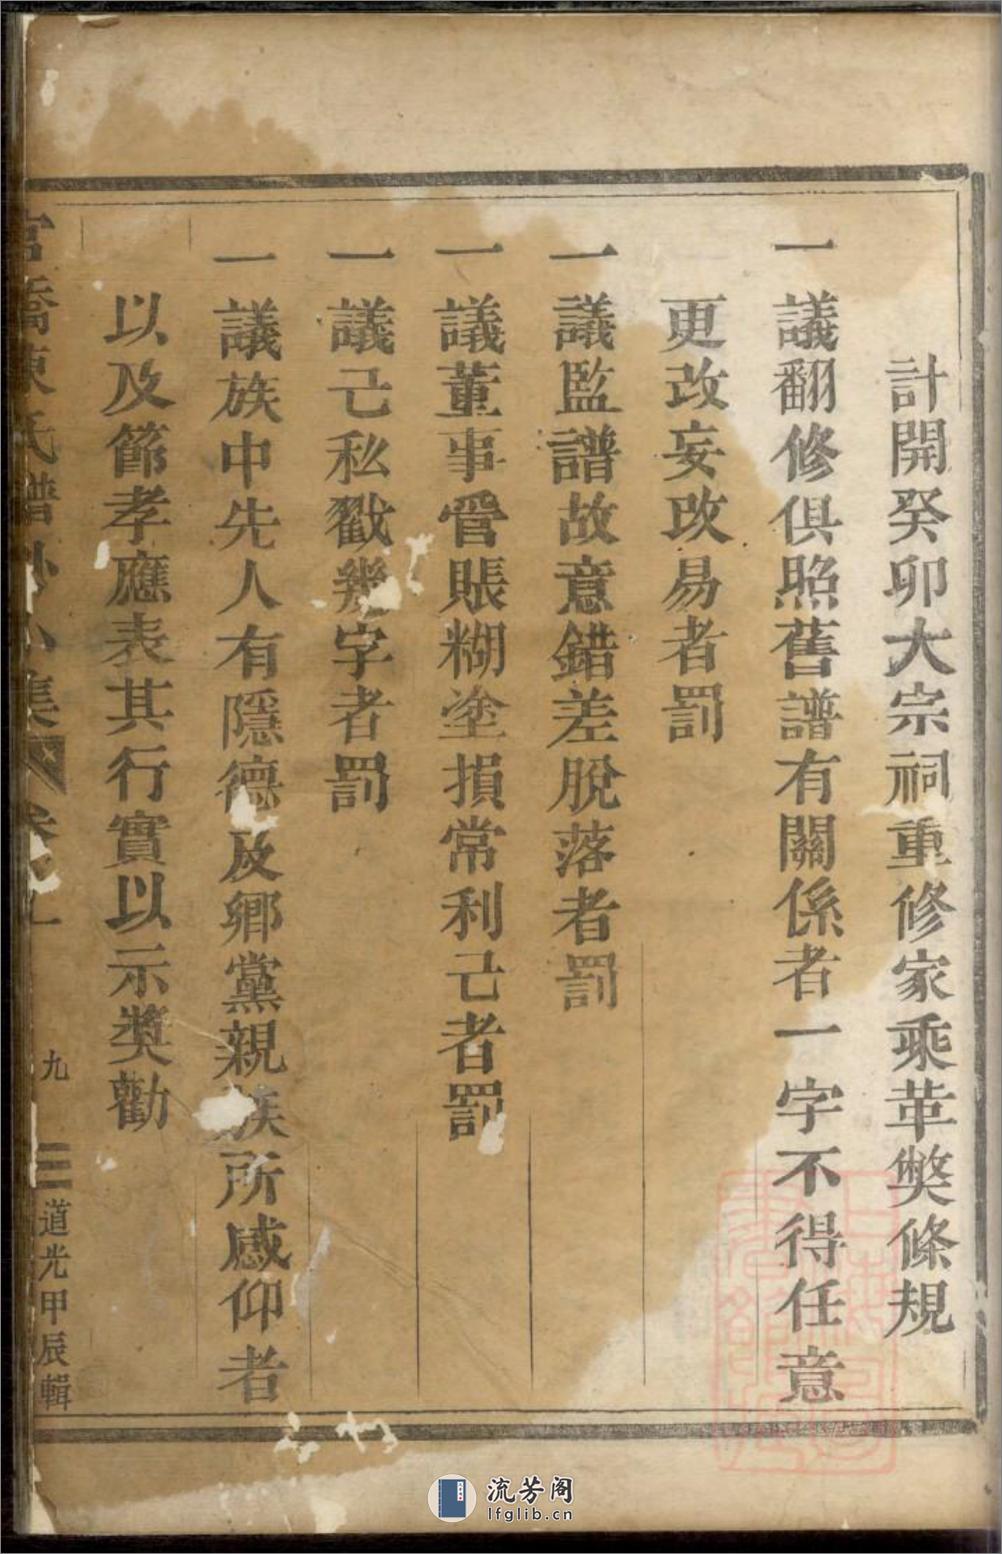 計開癸卯大宗祠重修家乘革獘條規
一議翻修俱照舊譜有關係者一字不得任意
更改妄改易者罰
一議監譜故意錯差脫落者罰
一議董事管賬糊塗損常利己者罰
一議己私戳幾字者罰
一議族中先人有隱德及鄉黨親族所感仰者
以及節孝應表其行實以示獎勸
氏譜
九
道光甲辰輯
流芳阁
lfglib.cn